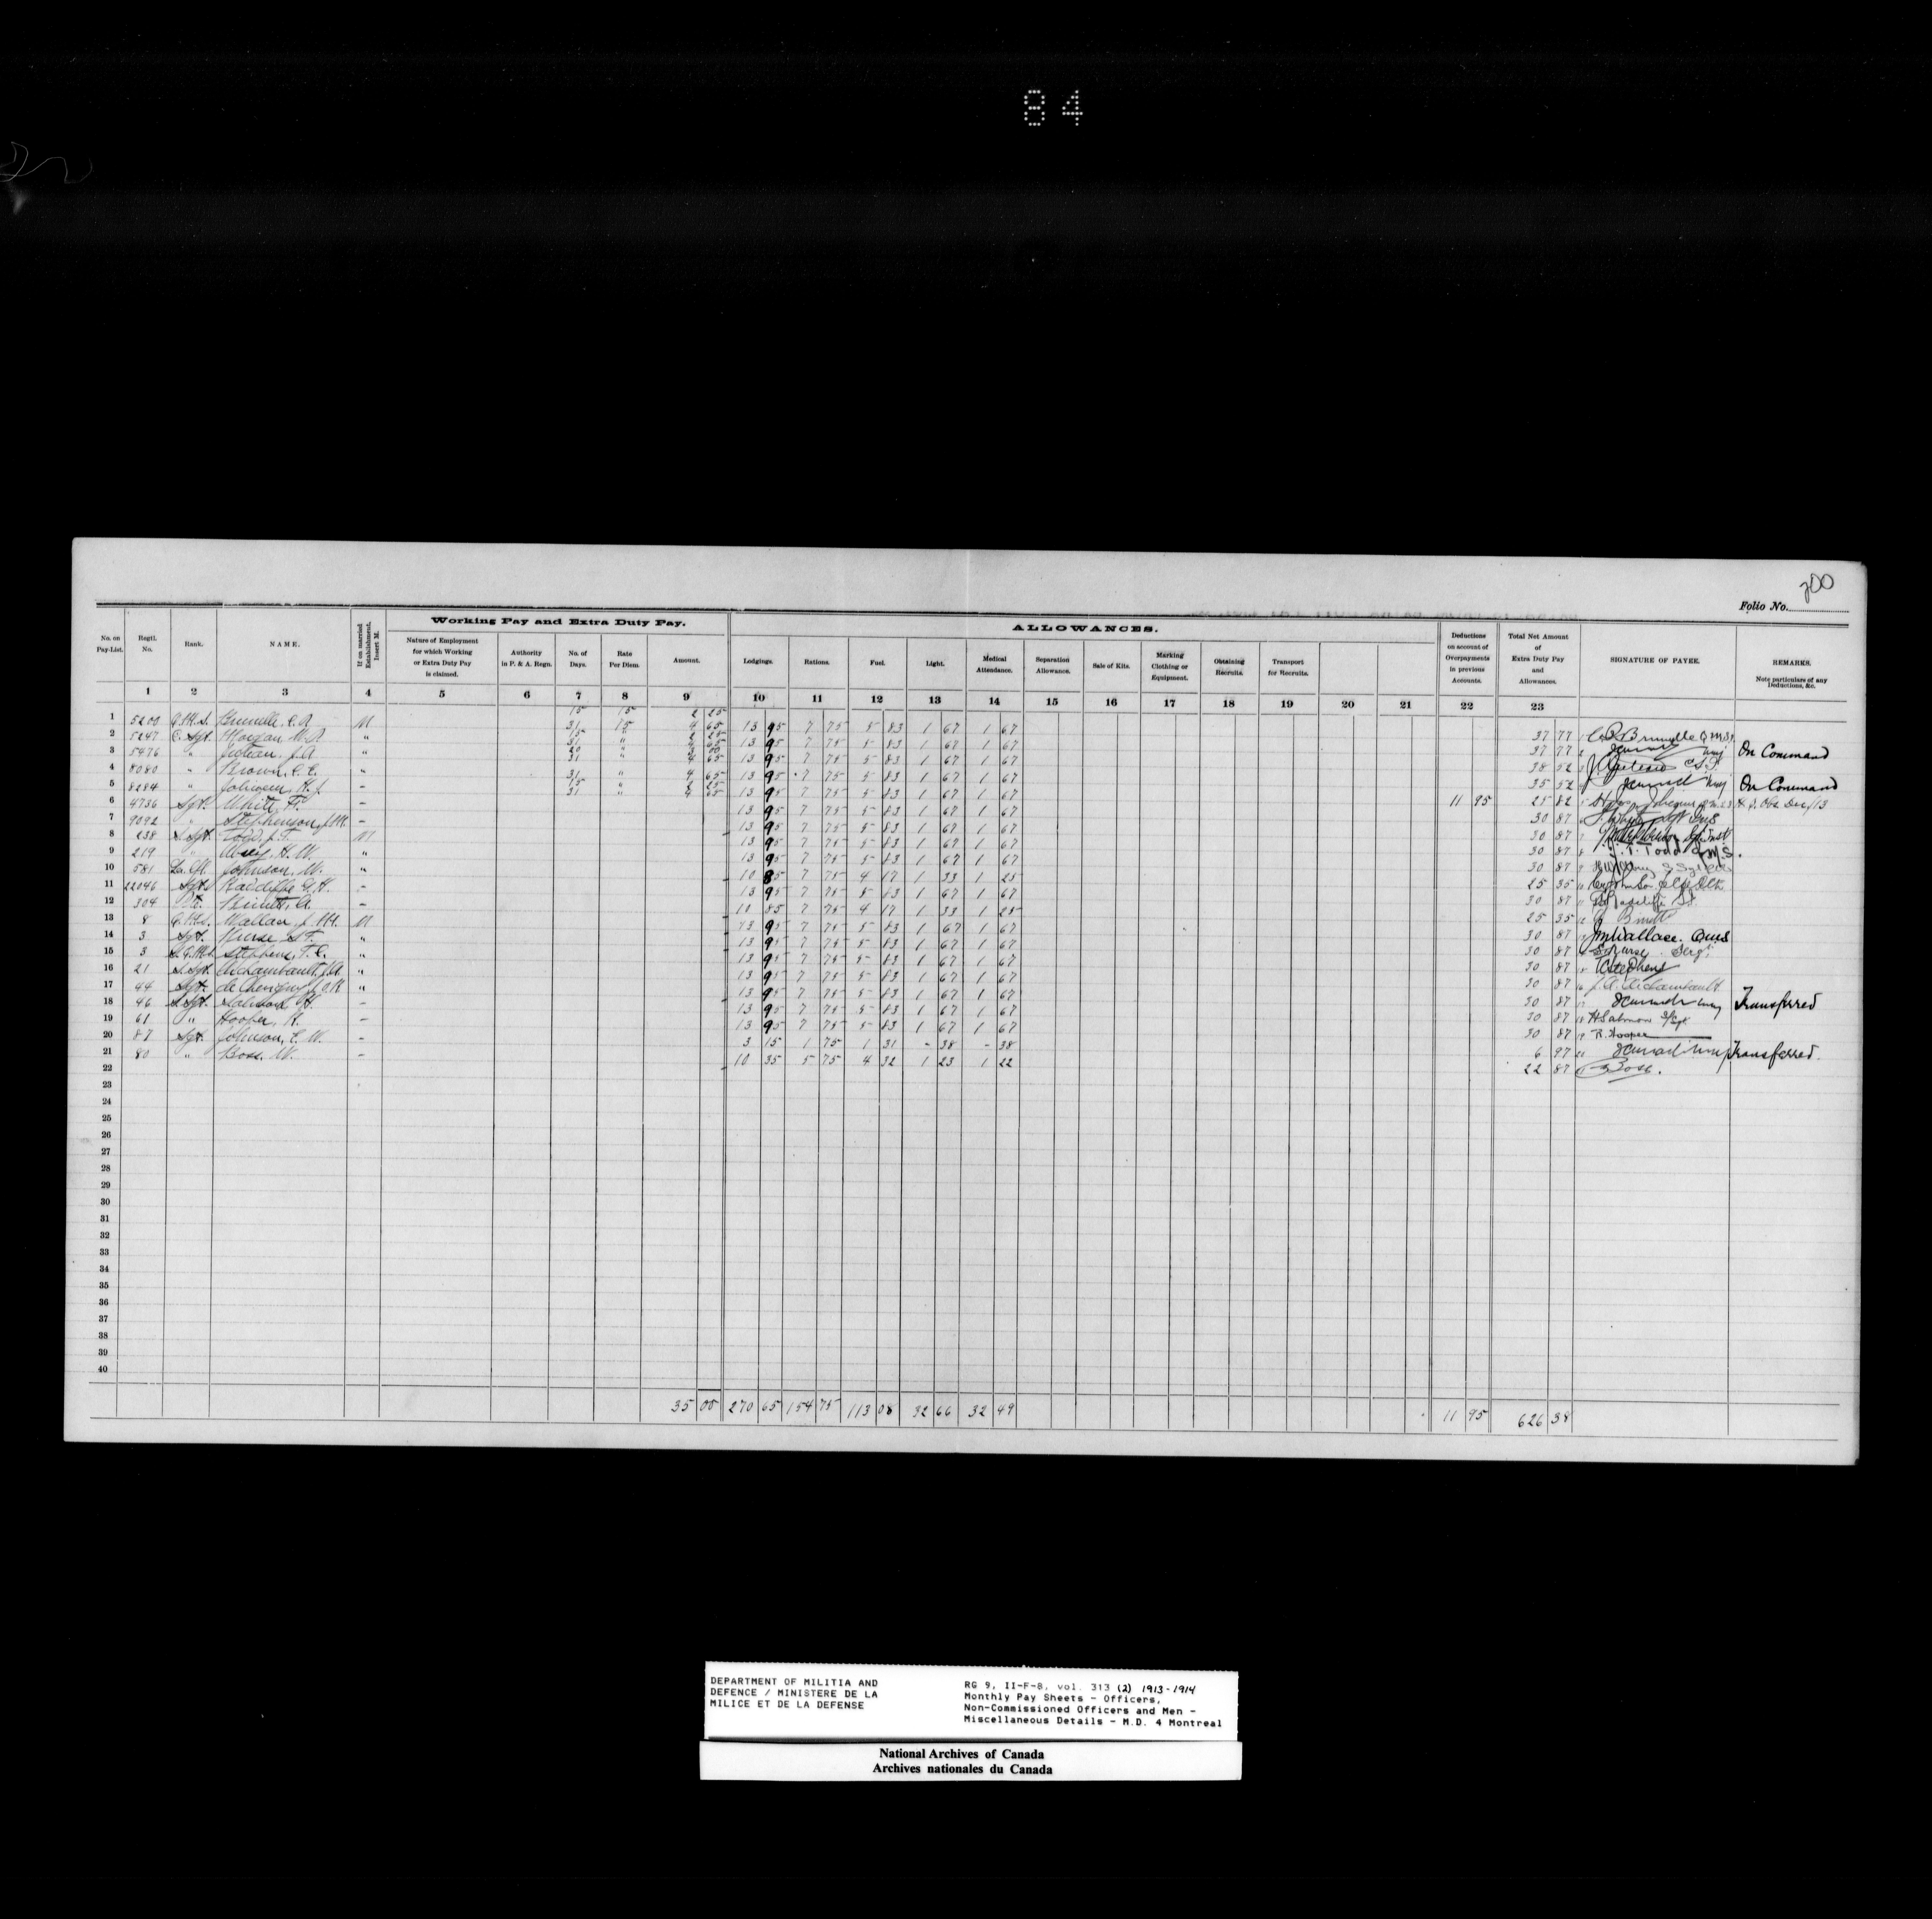 84
200
Folio No.
No. on Pay-List.
Regtl. No.
Rank.
NAME.
If on married Establishment, Insert M.
Working Pay and Extra Duty Pay.
Nature of Employment for which Working or Extra Duty Pay is claimed.
Authority in P. & A. Regn.
No. of Days.
Rate Per Diem.
Amount.
ALLOWANCES.
Lodgings.
Rations.
Fuel.
Light.
Medical Attendance.
Separation Allowance.
Sale of Kits.
Marking Clothing or Equipment.
Obtaining Recruits.
Transport for Recruits.
Deductions on account of Overpayments in previous Accounts.
Total Net Amount of Extra Duty Pay and Allowances.
SIGNATURE OF PAYEE.
REMARKS.
Note particulars of any Deductions, &c.
1 2 3 4 5 6 7 8 9 10 11 12 13 14 15 16 17 18 19 20 21 22 23
1 5200 Q.M.S. Brunelle, C.R. M 15 15 2 25 31 15 4 65 13 95 7 75 5 83 1 67 1 67 37 77
2 5247 C. Sgt. Morgan " 15 " 2 25 31 " 4 65 13 95 7 75 5 83 1 67 1 67 37 77 On Command
3 5476 " Julian, J.A. " 20 " 3 00 31 " 4 65 13 95 7 75 5 83 1 67 1 67 38 52
4 8080 " Brown, C.E. " 31 " 4 65 13 95 7 75 5 83 1 67 1 67 35 52 On Command
5 8284 " H.J. - 15 " 2 25 31 " 4 65 13 95 7 75 5 83 1 67 1 67 11 95 25 82 Dec/13
6 4736 Sgt. White, F. - 13 95 7 75 5 83 1 67 1 67 30 87
7 9092 " Stephenson, J.M. - 13 95 7 75 5 83 1 67 1 67 30 87
8 238 S. Sgt. Todd, J.T. M 13 95 7 75 5 83 1 67 1 67 30 87 J.T. Todd Q.M.S.
9 219 " H.W. " 13 95 7 75 5 83 1 67 1 67 30 87
10 581 La. Cpl. Johnson, W. " 10 85 7 75 4 17 1 33 1 25 25 35
11 22046 Sgt. Radcliffe - 13 95 7 75 5 83 1 67 1 67 30 87
12 304 Pte. A. - 10 85 7 75 4 17 1 33 1 25 25 35
13 8 Q.M.S. Wallace, J.M. M 13 95 7 75 5 83 1 67 1 67 30 87 JM Wallace. QMS
14 3 Sgt. Nurse " 13 95 7 75 5 83 1 67 1 67 30 87
15 3 S.Q.M.S. Stephens, T.C. " 13 95 7 75 5 83 1 67 1 67 30 87
16 21 S. Sgt. Archambault, J.A. " 13 95 7 75 5 83 1 67 1 67 30 87 J.A. Archambault
17 44 Sgt. " 13 95 7 75 5 83 1 67 1 67 30 87 Transferred
18 46 S. Sgt. Salmon, H. - 13 95 7 75 5 83 1 67 1 67 30 87 H Salmon S/Sgt.
19 61 " Hooper, R. - 13 95 7 75 5 83 1 67 1 67 30 87 R. Hooper
20 87 Sgt. Johnson, C.W. - 3 15 1 75 1 31 - 38 - 38 6 97 Transferred.
21 80 " Boss, W. - 10 35 5 75 4 32 1 23 1 22 22 87
22
23
24
25
26
27
28
29
30
31
32
33
34
35
36
37
38
39
40
35 00 270 65 154 75 113 08 32 66 32 49 11 95 626 38
DEPARTMENT OF MILITIA AND
DEFENCE / MINISTERE DE LA
MILICE ET DE LA DEFENSE
RG 9, II-F-8, vol. 313 (2) 1913-1914
Monthly Pay Sheets - Officers,
Non-Commissioned Officers and Men -
Miscellaneous Details - M.D. 4 Montreal
National Archives of Canada
Archives nationales du Canada